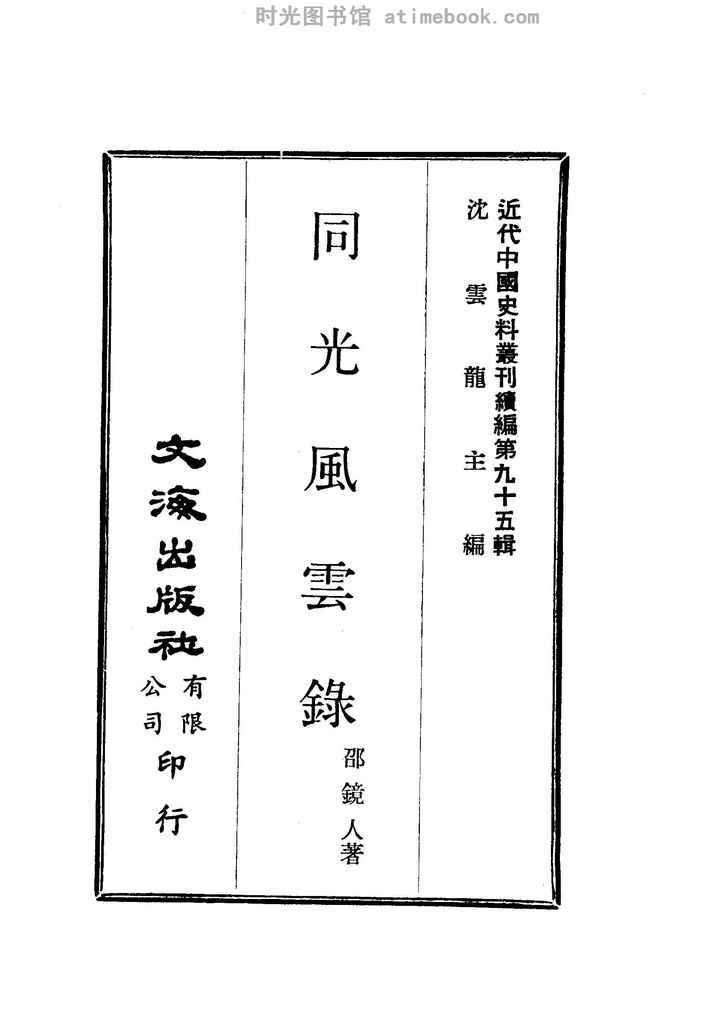 时光图书馆 atimebook.com
近代中國史料叢刊續編第九十五輯
沈雲龍主編
同光風雲錄
邵鏡人著
文海出版社
有限
公司
印行